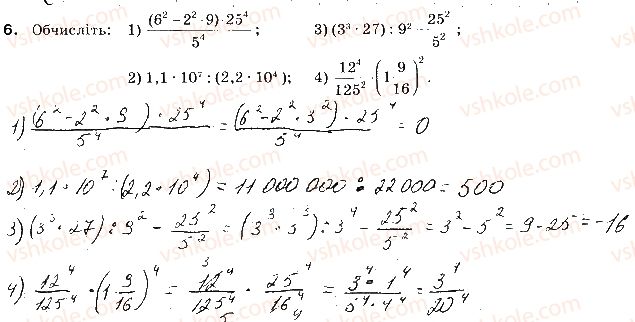 6. Обчисліть: 1) (6² − 2² · 9) · 25⁴ / 5⁴ ; 3) (3³ · 27) : 9² − 25² / 5² ;
2) 1,1 · 10⁷ : (2,2 · 10⁴ ); 4) 12⁴ / 125² · (1 9/16)² .
1) (6² − 2² · 9) · 25⁴ / 5⁴ = (6² − 2² · 3²) · 25⁴ / 5⁴ = 0
2) 1,1 · 10⁷ : (2,2 · 10⁴) = 11 000 000 : 22 000 = 500
3) (3³ · 27) : 9² − 25² / 5² = (3³ · 3³) : 3⁴ − 25² / 5² = 3² − 5² = 9 − 25 = −16
4) 12⁴ / 125⁴ · (1 9/16)⁴ = 12⁴ / 125⁴ · 25⁴ / 16⁴ = 3⁴ · 1⁴ / 5⁴ · 4⁴ = 3⁴ / 20⁴